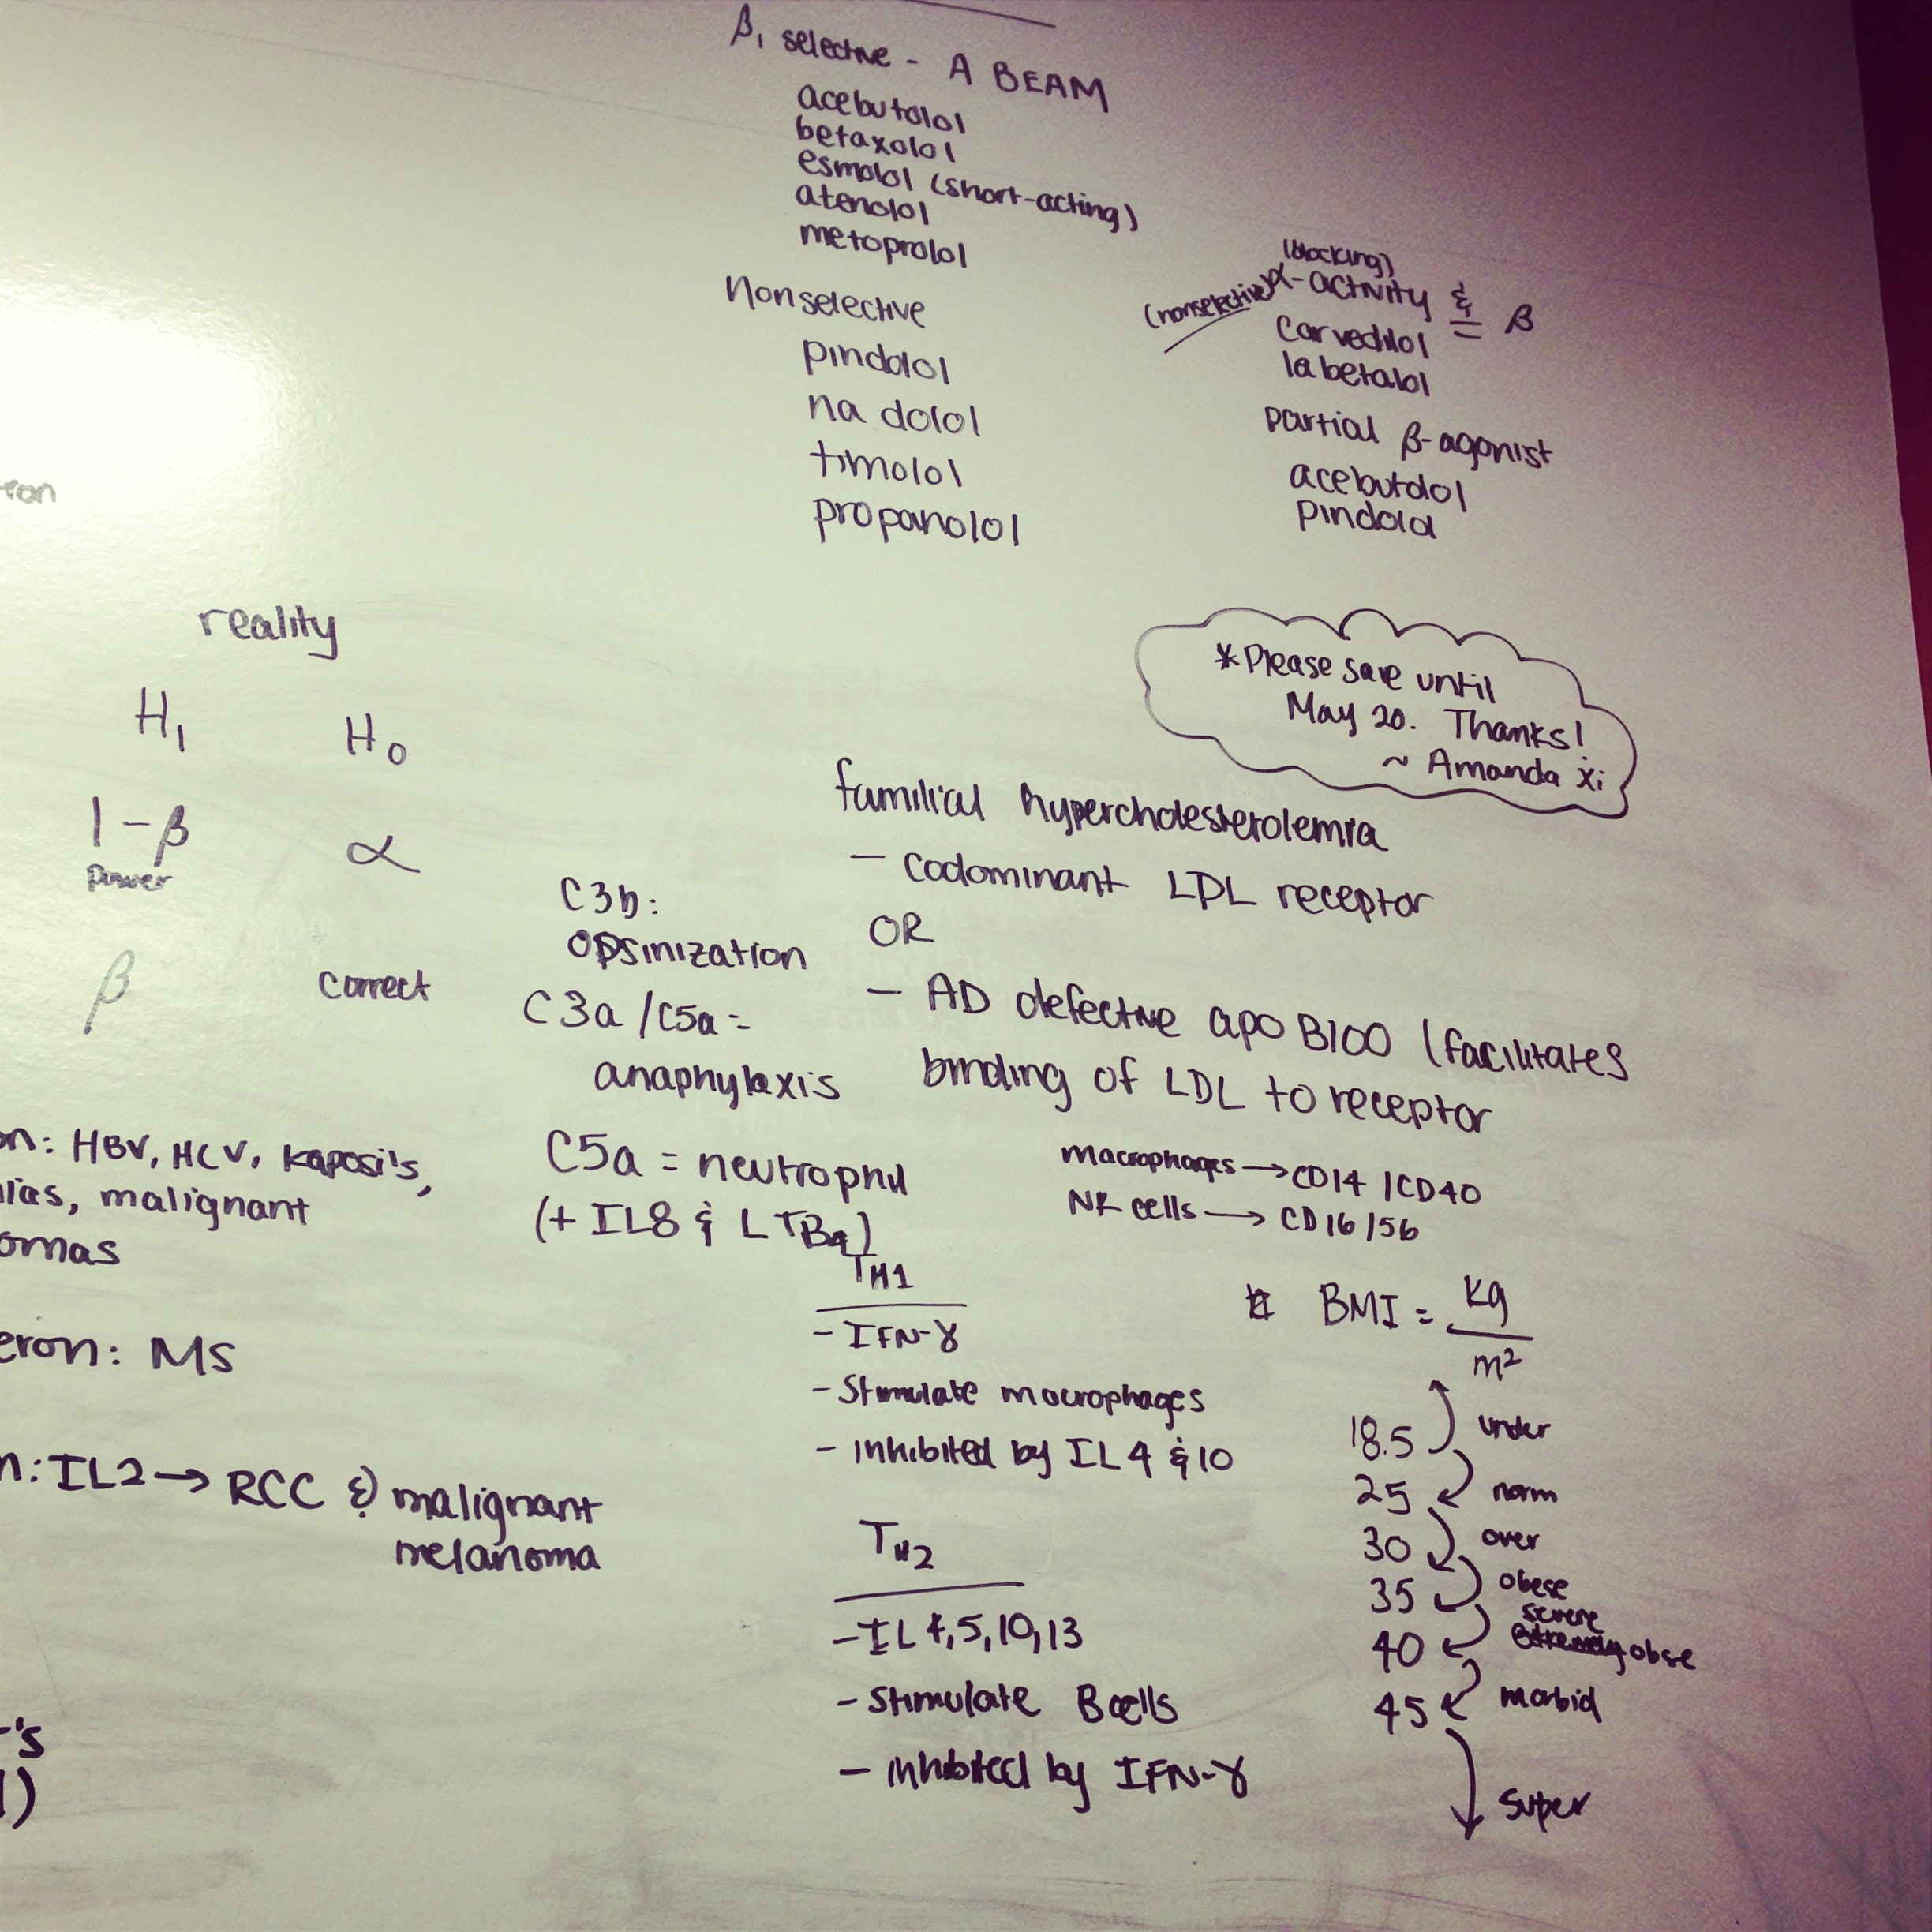 β₁ selective - A BEAM
acebutolol
betaxolol
esmolol (short-acting)
atenolol
metoprolol
Nonselective
pindolol
nadolol
timolol
propanolol
(blocking)
(nonselective) α-activity & β
carvedilol
labetalol
partial β-agonist
acebutolol
pindolol
ron
reality
H₁ H₀
1-β α
power
β correct
*Please save until
May 20. Thanks!
~ Amanda Xi
familial hypercholesterolemia
- codominant LDL receptor
OR
- AD defective apo B100 (facilitates
binding of LDL to receptor
C3b:
opsinization
C3a/C5a =
anaphylaxis
C5a = neutrophil
(+ IL8 & LTB4)
macrophages → CD14/CD40
NK cells → CD16/56
on: HBV, HCV, Kaposi's,
lias, malignant
omas
eron: MS
n: IL2 → RCC & malignant
melanoma
's
)
TH1
- IFN-γ
- Stimulate macrophages
- inhibited by IL4 & 10
TH2
- IL 4, 5, 10, 13
- Stimulate B cells
- inhibited by IFN-γ
BMI = kg
m²
18.5 under
25 norm
30 over
35 obese
severe
40 extremely obse
45 morbid
super